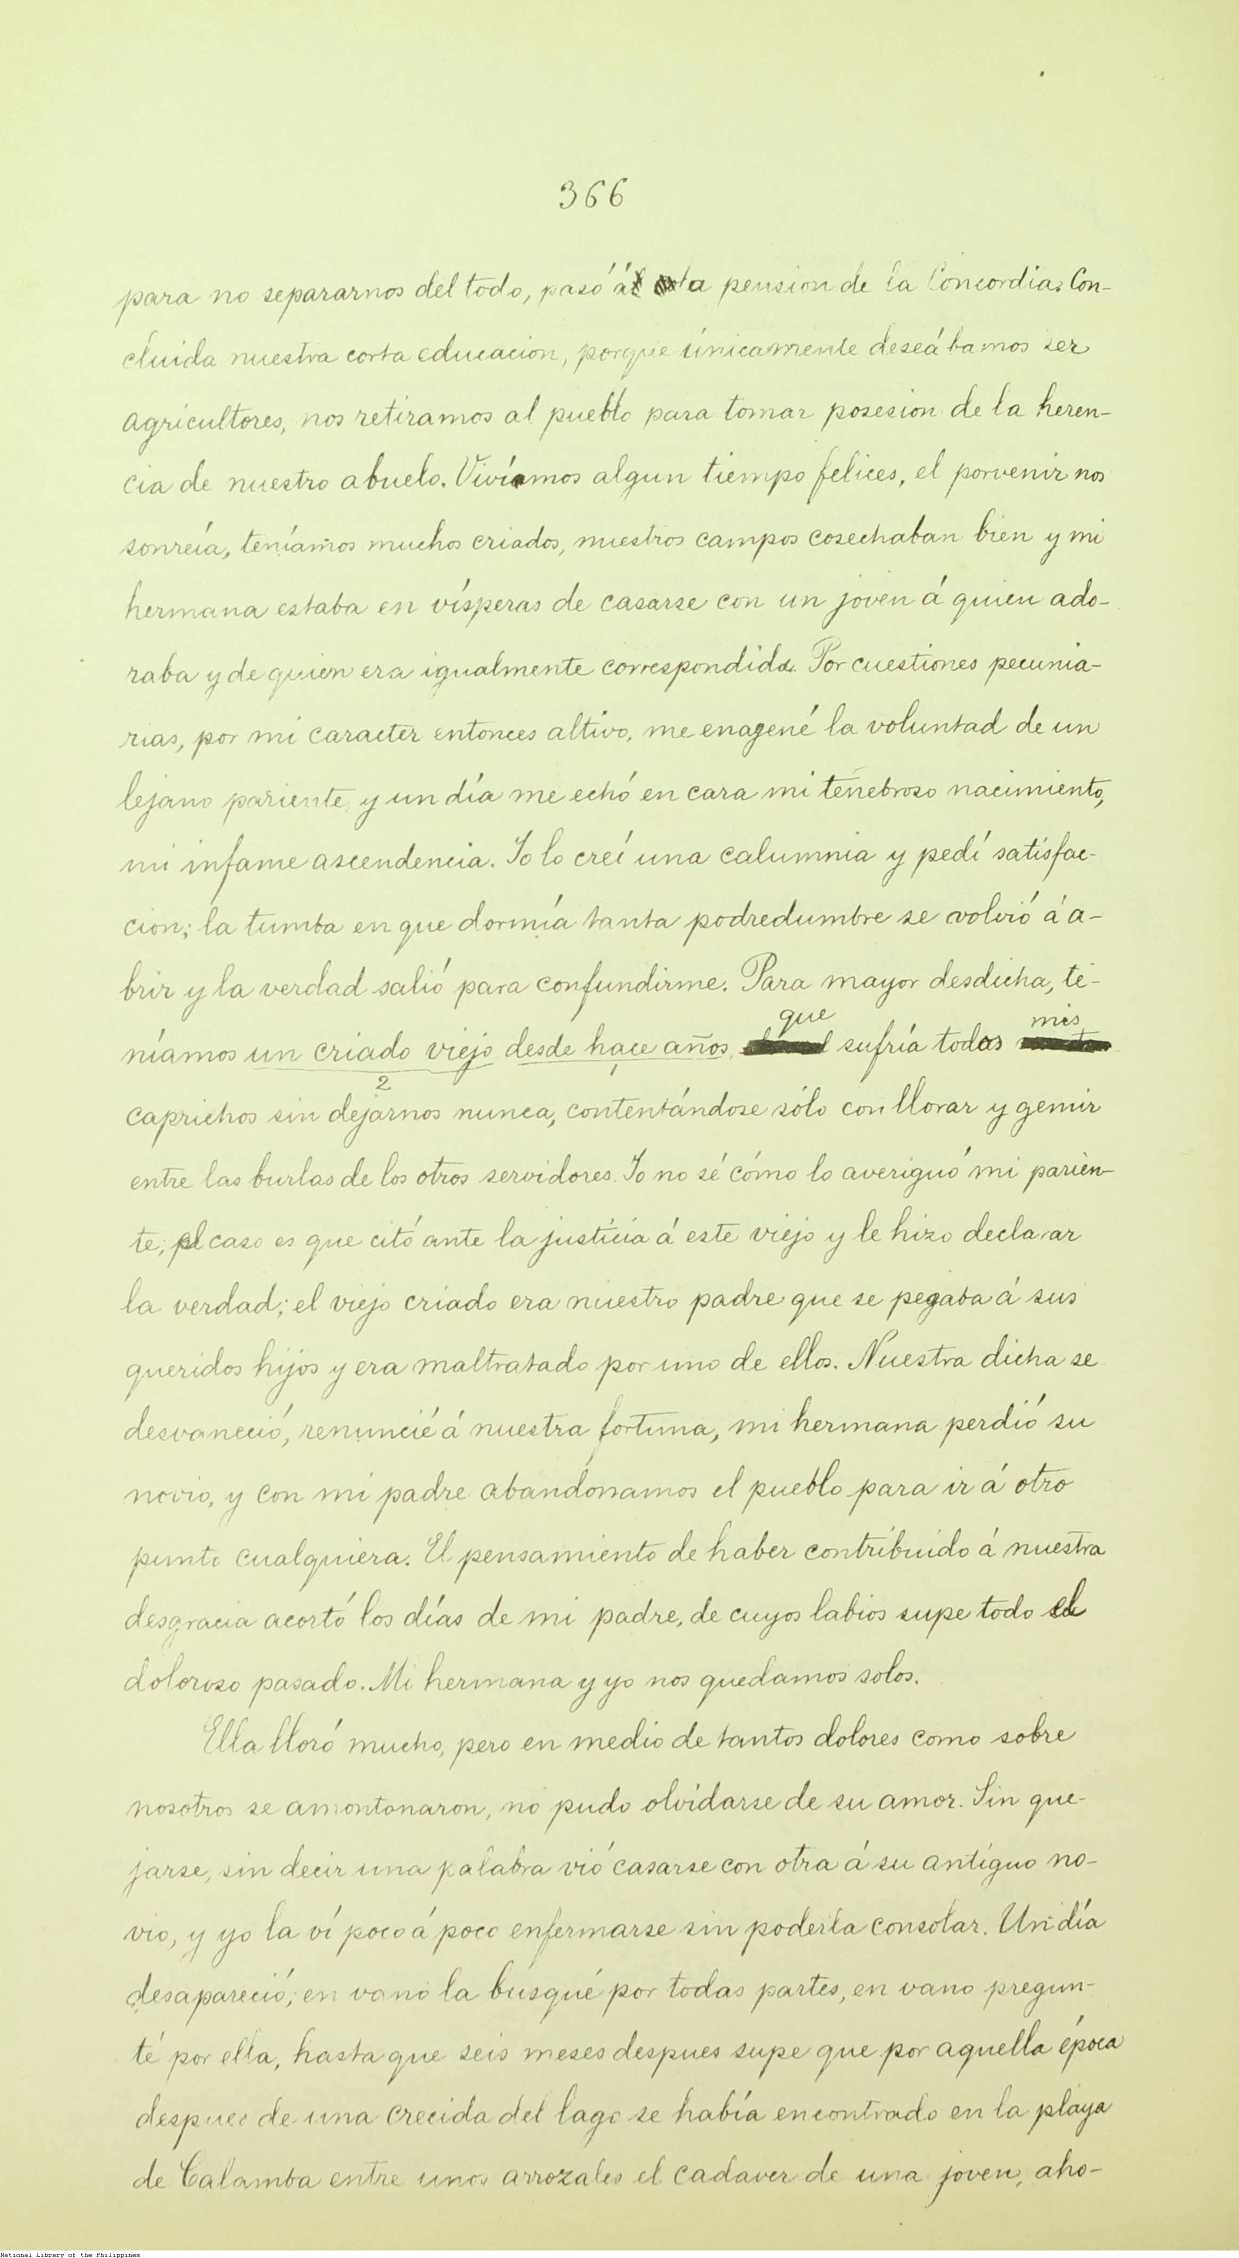 366
para no separarnos del todo, pasó á la pension de la Concordia. Con-
cluida nuestra corta educacion, porque únicamente deseábamos ser
agricultores, nos retiramos al pueblo para tomar posesion de la heren-
cia de nuestro abuelo. Vivíamos algun tiempo felices, el porvenir nos
sonreía, teníamos muchos criados, nuestros campos cosechaban bien y mi
hermana estaba en vísperas de casarse con un joven á quien ado-
raba y de quien era igualmente correspondida. Por cuestiones pecunia-
rias, por mi caracter entonces altivo, me enagené la voluntad de un
lejano pariente, y un día me echó en cara mi tenebroso nacimiento,
mi infame ascendencia. Yo lo creí una calumnia y pedí satisfac-
cion; la tumba en que dormía tanta podredumbre se volvió á a-
brir y la verdad salió para confundirme. Para mayor desdicha, te-
que mis
níamos un criado viejo desde hace años, sufría todos
2 1
caprichos sin dejarnos nunca, contentándose sólo con llorar y gemir
entre las burlas de los otros servidores. Yo no sé cómo lo averiguó mi parien-
te; el caso es que citó ante la justicia á este viejo y le hizo declarar
la verdad; el viejo criado era nuestro padre que se pegaba á sus
queridos hijos y era maltratado por uno de ellos. Nuestra dicha se
desvaneció, renuncié á nuestra fortuna, mi hermana perdió su
novio, y con mi padre abandonamos el pueblo para ir á otro
punto cualquiera. El pensamiento de haber contribuido á nuestra
desgracia acortó los días de mi padre, de cuyos labios supe todo el
doloroso pasado. Mi hermana y yo nos quedamos solos.
Ella lloró mucho, pero en medio de tantos dolores como sobre
nosotros se amontonaron, no pudo olvidarse de su amor. Sin que-
jarse, sin decir una palabra vió casarse con otra á su antiguo no-
vio, y yo la ví poco á poco enfermarse sin poderla consolar. Un día
desapareció; en vano la busqué por todas partes, en vano pregun-
té por ella, hasta que seis meses despues supe que por aquella época
despues de una crecida del lago se había encontrado en la playa
de Calamba entre unos arrozales el cadaver de una joven, aho-
National Library of the Philippines